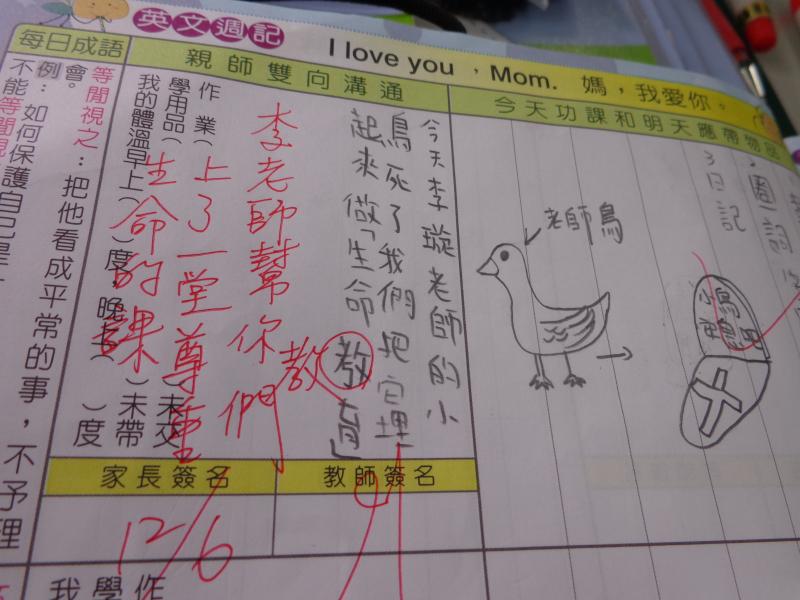 英文週記
I love you，Mom. 媽，我愛你。
今天功課和明天應帶物品
3日記
老師鳥
親師雙向溝通
今天李璇老師的小
鳥死了我們把它埋
起來做「生命教育」
教
李老師幫你們
上了一堂尊重
生命的課
作業（
）未交
學用品（
）未帶
我的體溫早上（
）度，晚上（
）度
教師簽名
家長簽名
12/6
每日成語
等閒視之：把他看成平常的事，不予理
會。
例：如何保護自己是
不能等閒視
我學作